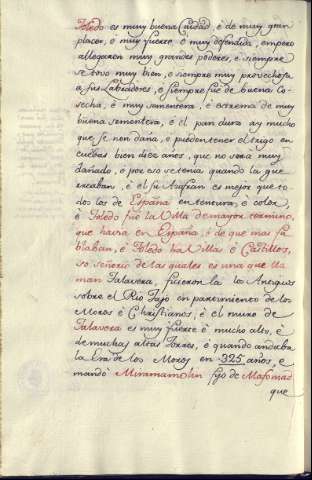 Toledo es muy buena Ciudad, è de muy gran
placer, è muy fuerte è muy defendida, empero
allegaren muy grandes poderes, è siempre
se tovo muy bien, e siempre muy provechosa
a sus Labradores, e siempre fué de buena Co-
secha, è muy sementera, è estrema de muy
buena sementera, è el pan dura ay mucho
que se non daña, e pueden tener el trigo en
cuebas bien diez años, que no sera muy
dañado, e por eso se tenia quando la guer
reaban, è el su Azafran es mejor que to-
dos los de España en tentura, è color,
è Toledo fué la Villa de mayor termino,
que havia en España, è de que mas fa
blaban, è Toledo ha Villas è Castillos,
so señorio de las quales es una que lla
man Talavera, ficieron la los Antiguos
sobre el Rio Tajo en partimiento de los
Moros è Christianos, è el muro de
Talavera es muy fuerte è mucho alto, è
de muchas altas Torres, e quando andaba
la Era de los Moros en 325 años, e
mandò Miramamolin fijo de Mafomad
que